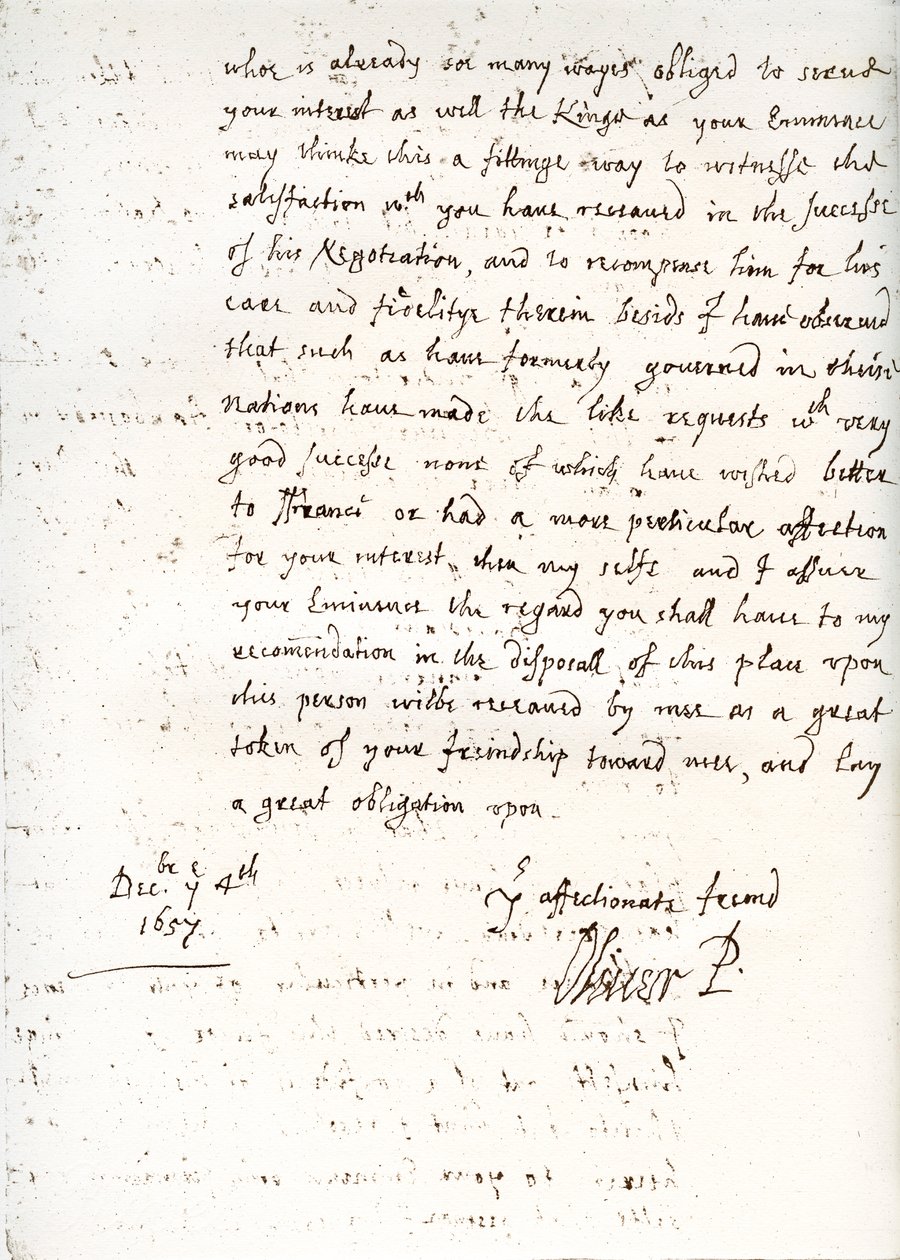 whoe is already soe many wayes obliged to serue
your interest as well the Kings as your Eminence
may thinke this a fittinge way to witnesse the
satisfaction wth you haue receaued in the successe
of his Negotiation, and to recompense him for his
care and fidelitye therein besids I haue obserued
that such as haue formerly gouerned in theise
Nations haue made the like requests wth very
good successe none of which haue wished better
to ffrance or had a more perticular affection
for your interest then my selfe and I assuer
your Eminence the regard you shall haue to my
recomendation in the disposall of this place vpon
this person wilbe receaued by mee as a great
token of your freindship toward mee, and Lay
a great obligation vpon
Decbr ye 4th
1657
Yr affectionate freind
Oliver P.